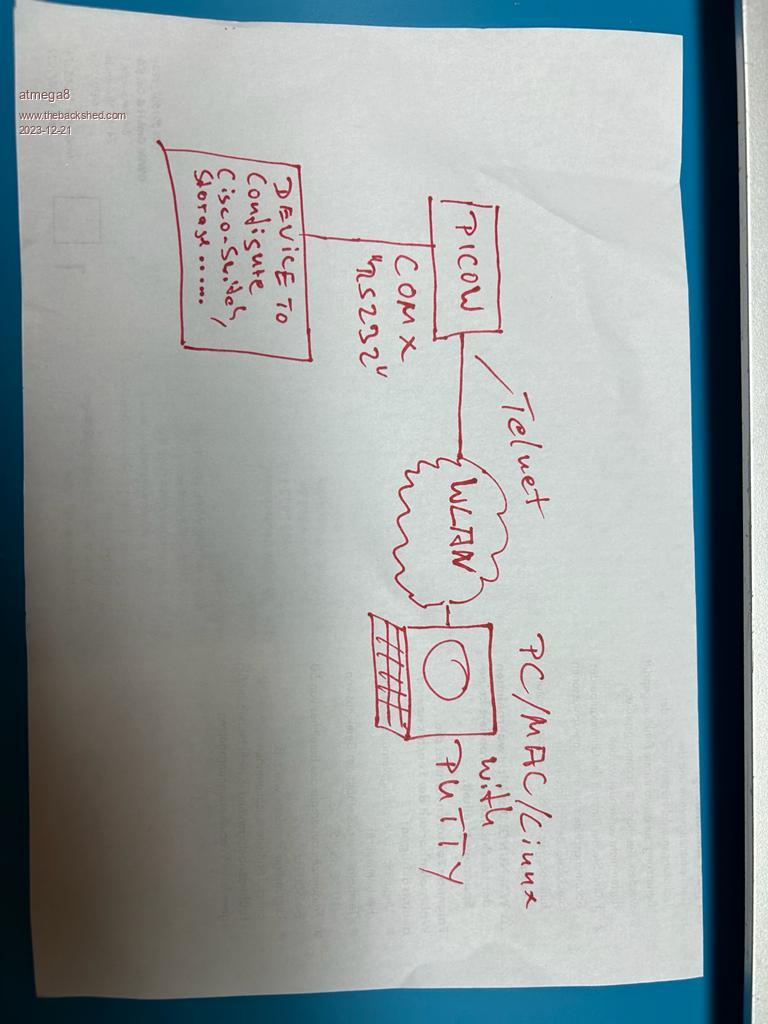 atmega8
www.thebackshed.com
2023-12-21
PICOW
Telnet
WLAN
PC/MAC/Linux
with
PUTTY
COM x
"RS232"
DEVICE TO
Configure
Cisco-Switch,
Storage......